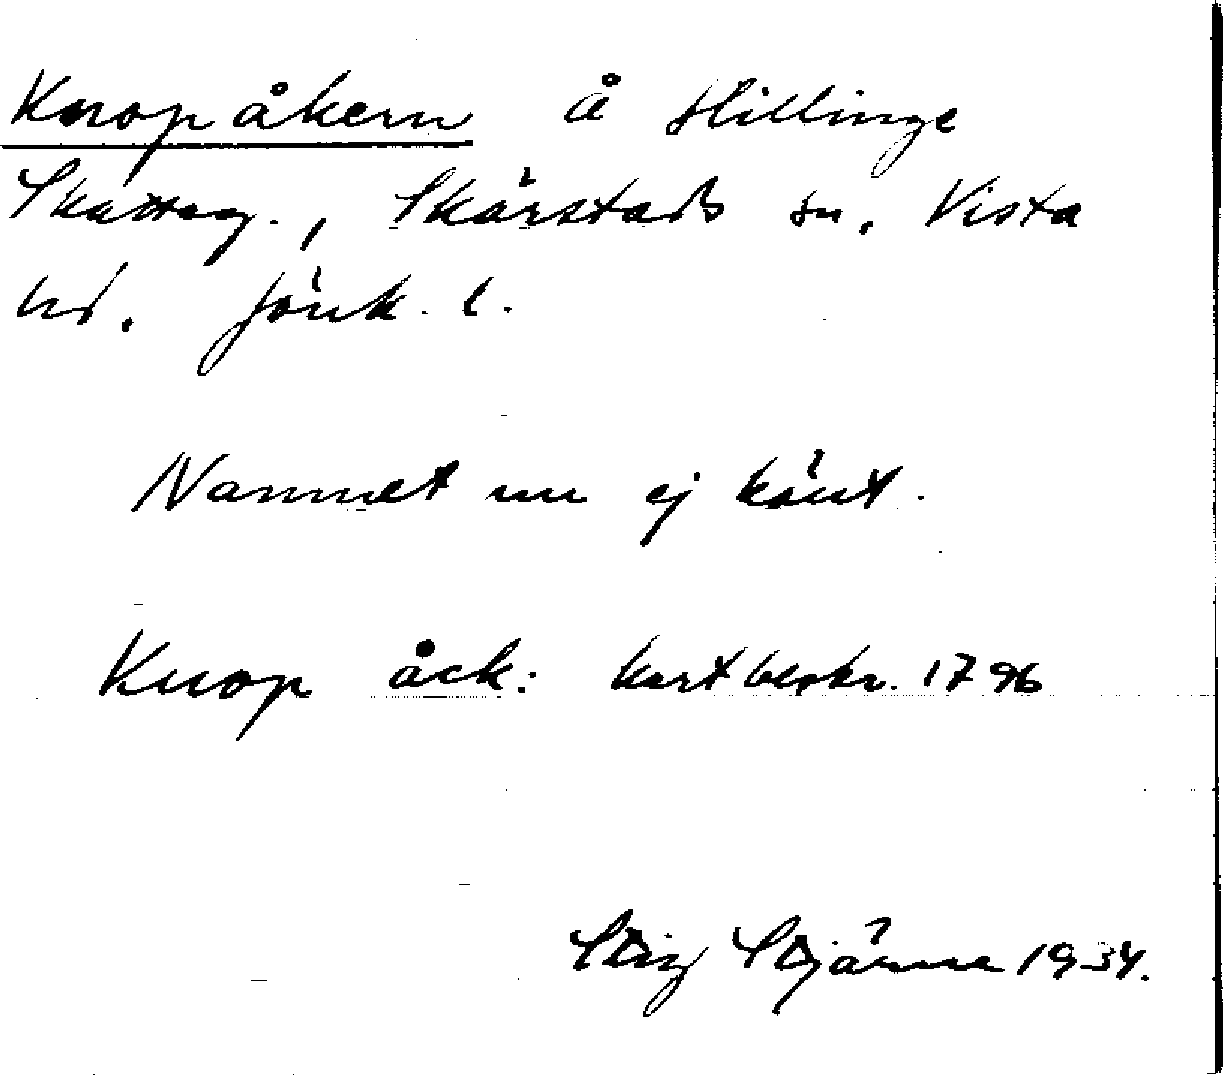 Knopåkern å Hillinge
Skatteg., Skärstads sn. Vista
hd. Jönk. l.
Namnet nu ej känt.
Knop åck: kartbeskr. 1796
Stig Stjärne 1934.